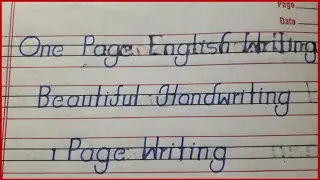 Page
Date
One Page English Writing
Beautiful Handwriting
1 Page Writing